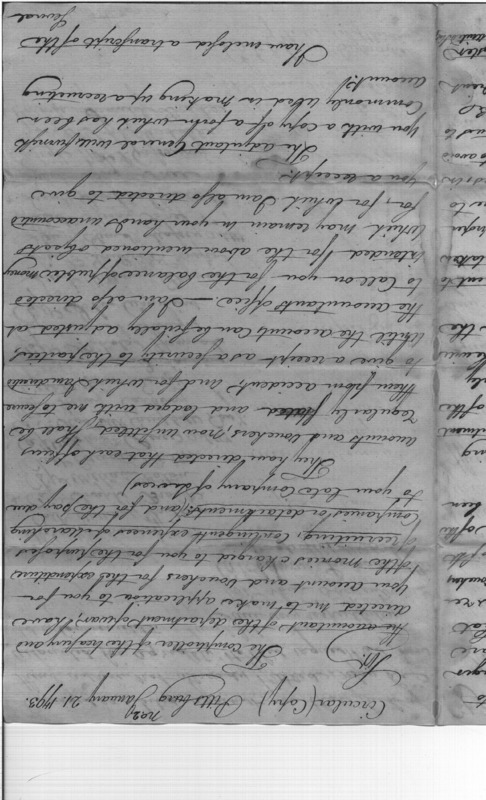 No 2
Circular (Copy) Pittsburg January 21. 1793.
Sir.
The comptroller of the treasury and
the accountant of the department of war, have
directed me to make application to you for
your account and vouchers for the expenditure
of the monies charged to you for the purposes of
recruiting, Contingent expences of marching
Companies or detachments, and for the pay due
to your late Company of Levies)
They have directed that each officers
accounts and vouchers, now unsettled shall be
regularly stated and lodged with me to secure
them from accident, and for which I am directed
to give a receipt as a security to the parties,
untill the accounts can be finally adjusted at
the accountants office. — I am also directed
to call on you for the balances of public money
intended for the above mentioned objects
which may remain in your hands unaccounted
for, for which I am also directed to give
you a receipt.
The adjutant General will furnish
you with a copy of a form which has been
Commonly used in making up a recruiting
account.
I have inclosed a transcript of the
General